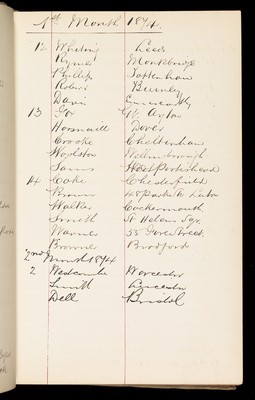 1st Month 1894.
12 Whiting Leeds
Kymer Monkbridge
Phillips Tottenham
Robert Burnley
Davis
13 Fox Gt. Ayton
Horsnaill Dover
Crooke Cheltenham
Woolston Wellingborough
Sams West Portishead
14 Oake Chesterfield
Brown 48 Park St Luton
Walker Cockermouth
Smith St Helens
Warner 55 Fore Street
Browne Bradford
2nd Month 1894
2 Westcombe Worcester
Smith Leicester
Dell Bristol